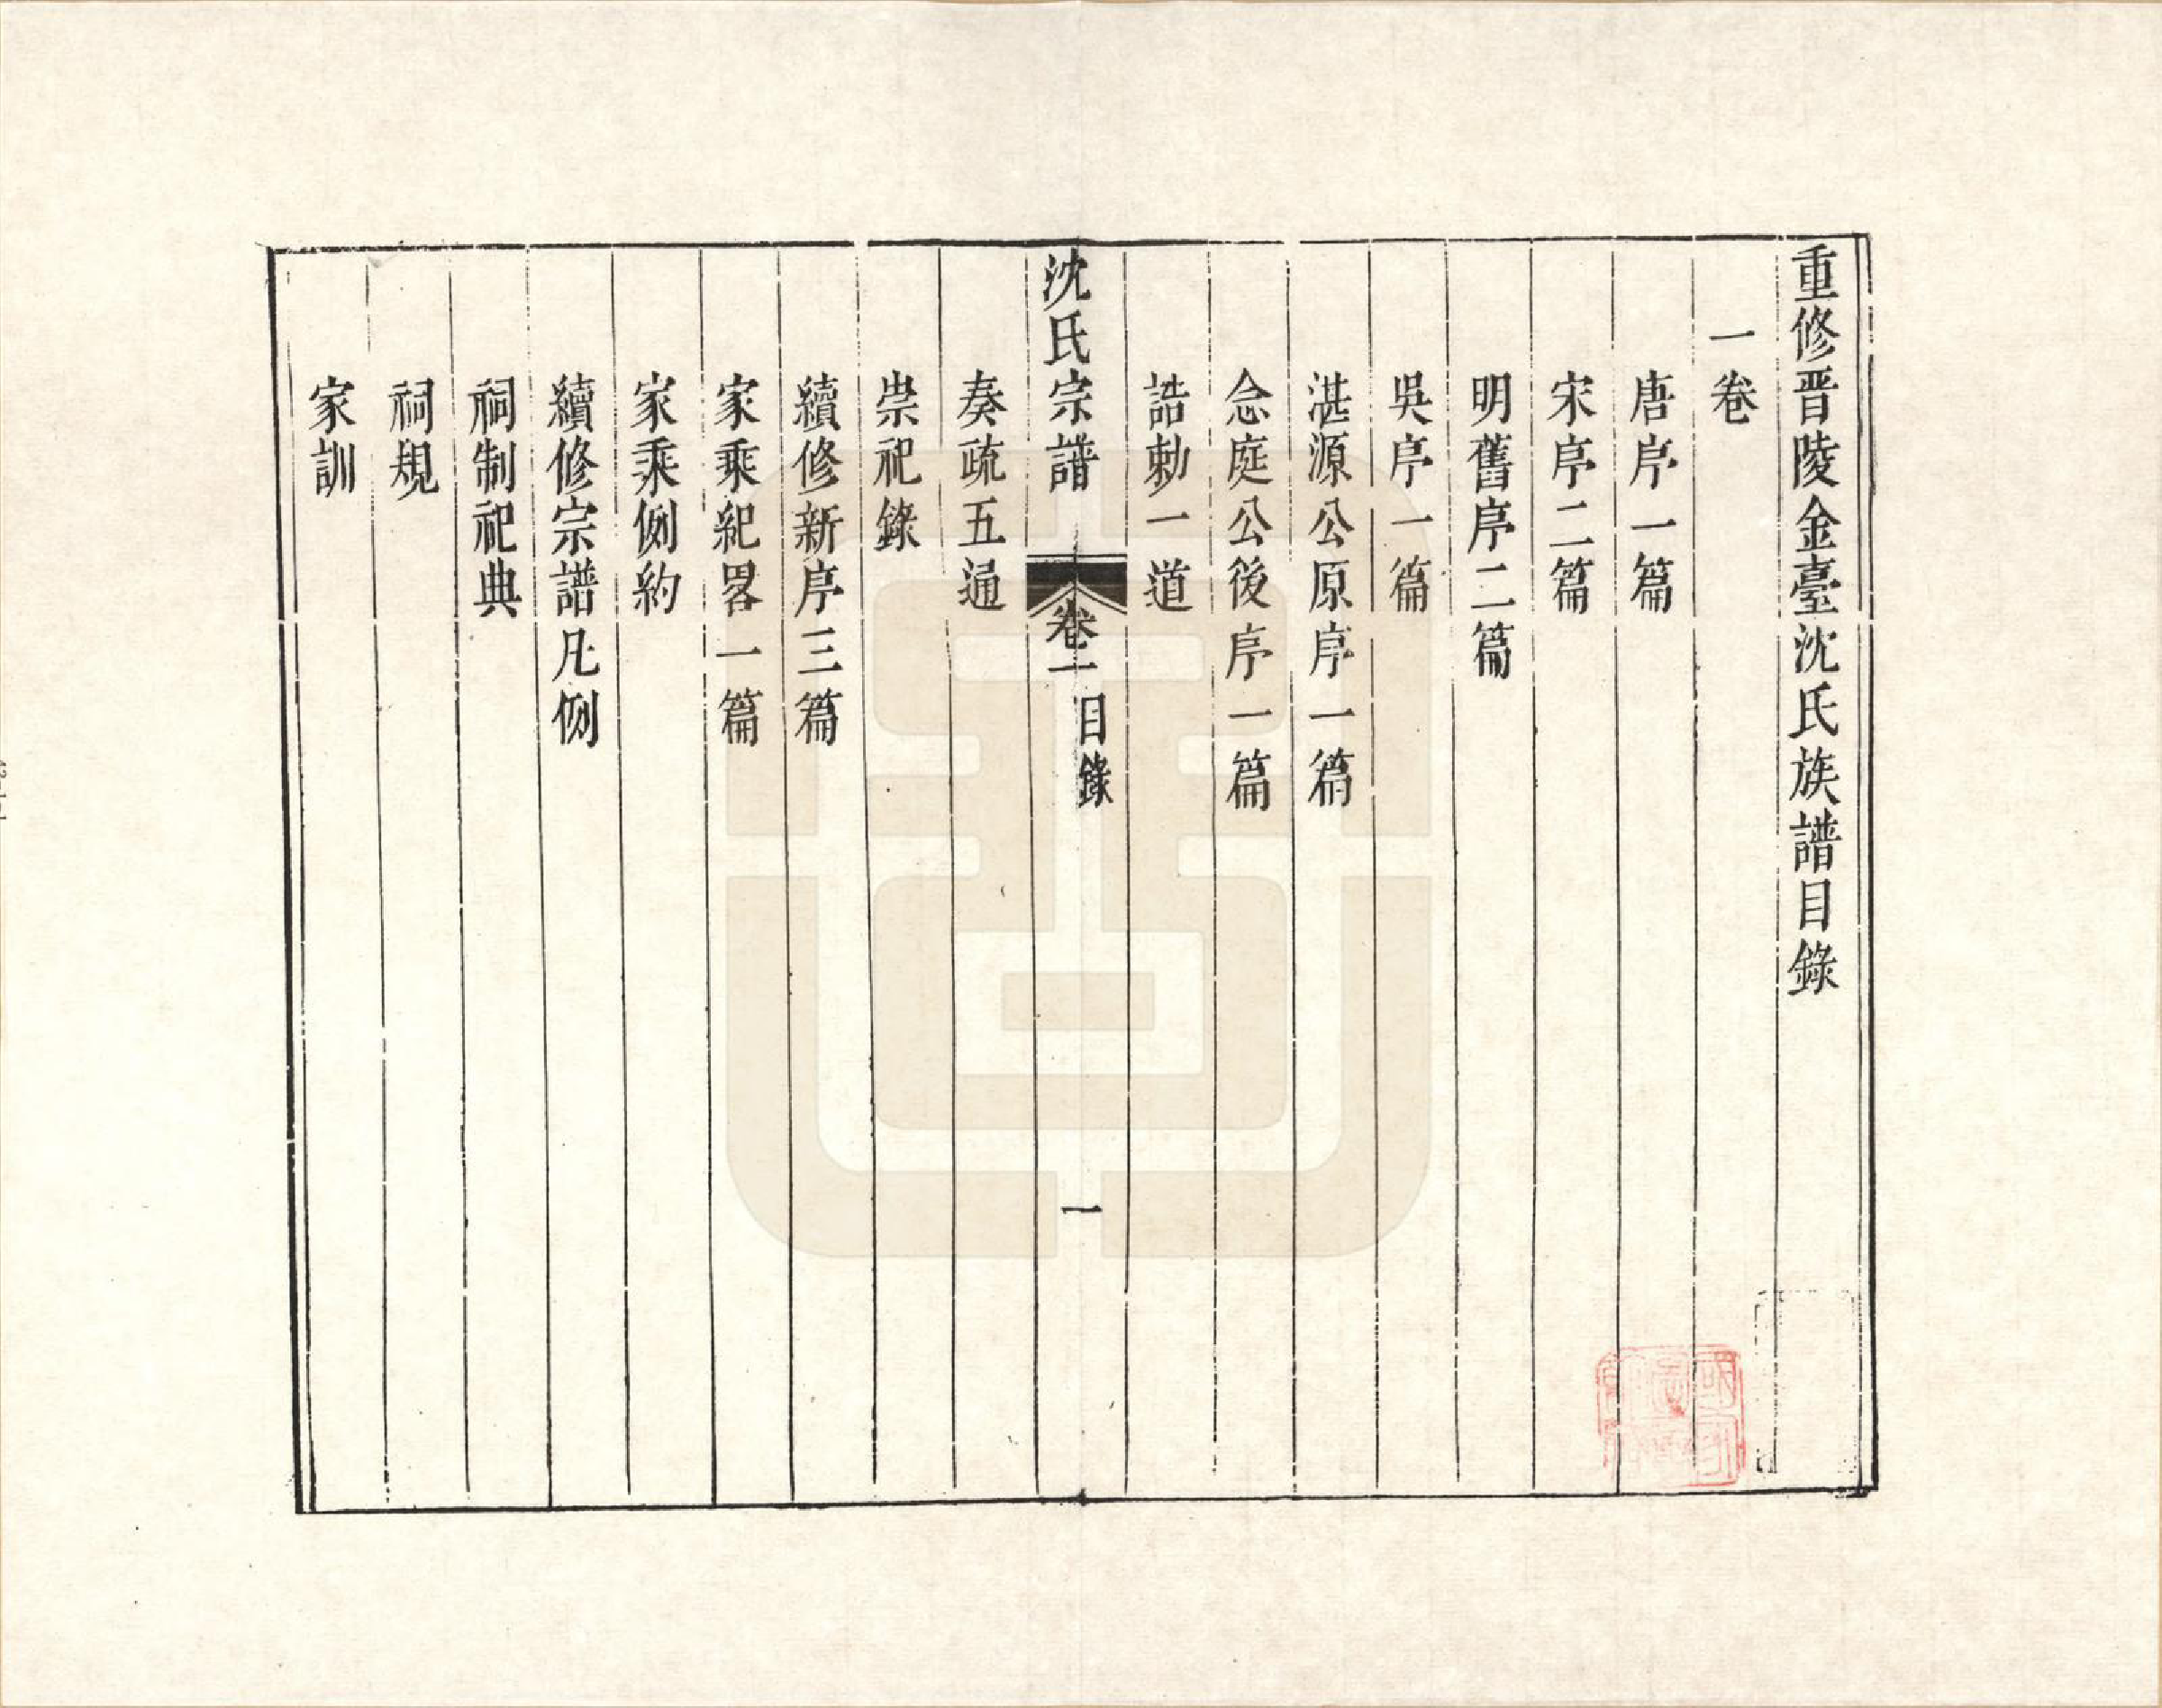 重修晋陵金臺沈氏族譜目錄
一卷
唐序一篇
宋序二篇
明舊序二篇
吳序一篇
湛源公原序一篇
念庭公後序一篇
誥勅一道
沈氏宗譜 卷一 目錄 一
奏疏五通
崇祀錄
續修新序三篇
家乘紀畧一篇
家乘例約
續修宗譜凡例
祠制祀典
祠規
家訓